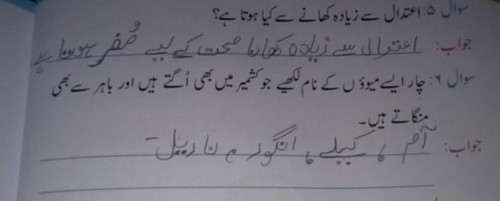 سوال ۵: اعتدال سے زیادہ کھانے سے کیا ہوتا ہے؟
جواب: اعتدال سے زیادہ کھانا صحت کے لیے مُضر ہوتا ہے
سوال ۶: چار ایسے میوؤں کے نام لکھیے جو کشمیر میں بھی اُگتے ہیں اور باہر سے بھی
منگاتے ہیں۔
جواب: آم، کیلے، انگور، ناریل۔